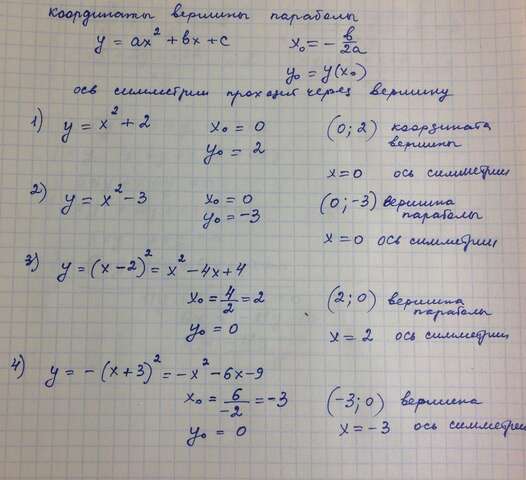 координаты вершины параболы
y = ax² + bx + c    x₀ = - b/2a
y₀ = y(x₀)
ось симметрии проходит через вершину
1) y = x² + 2    x₀ = 0    (0; 2) координата
y₀ = 2    вершины
x = 0 ось симметрии
2) y = x² - 3    x₀ = 0    (0; -3) вершина
y₀ = -3    параболы
x = 0 ось симметрии
3) y = (x - 2)² = x² - 4x + 4
x₀ = 4/2 = 2    (2; 0) вершина
параболы
y₀ = 0    x = 2 ось симметрии
4) y = - (x + 3)² = - x² - 6x - 9
x₀ = 6/-2 = -3    (-3; 0) вершина
y₀ = 0    x = -3 ось симметрии